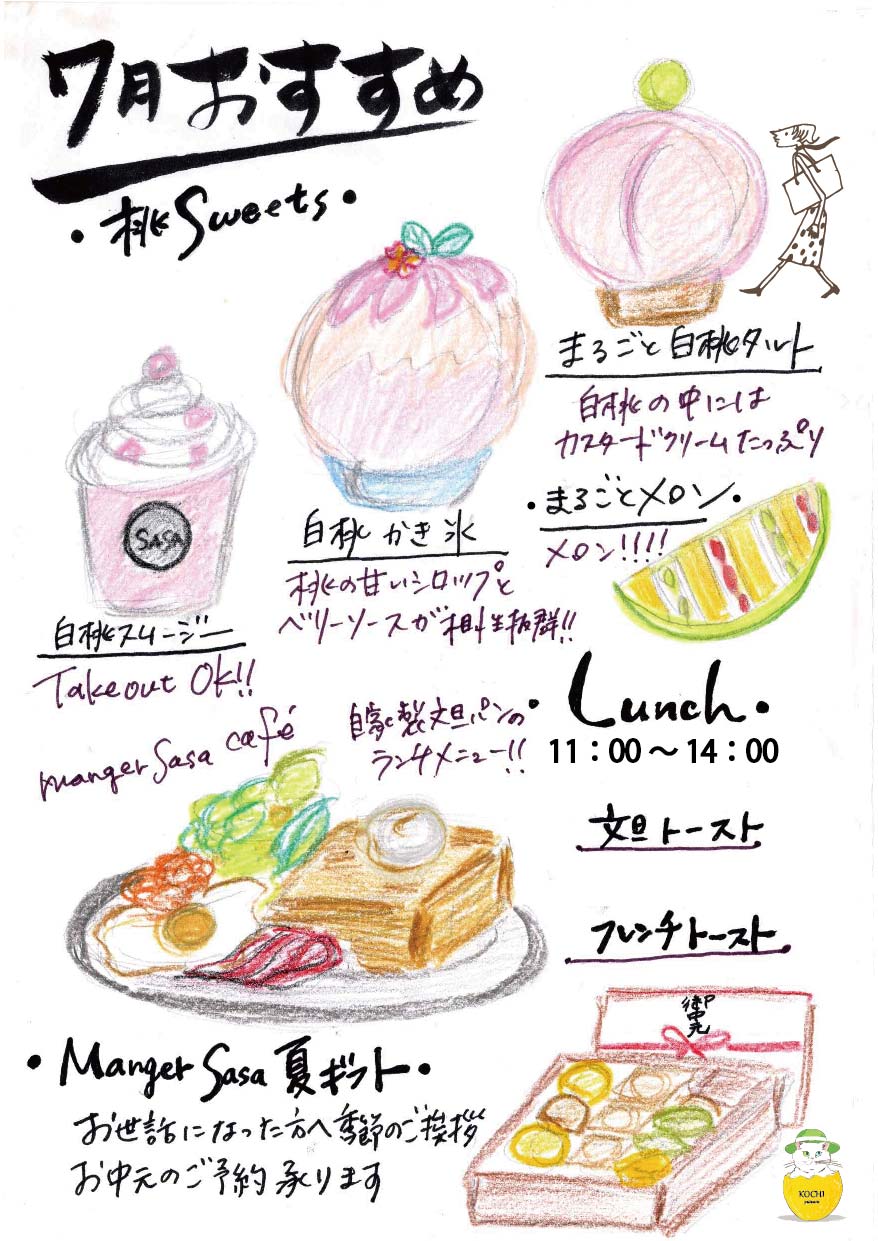 7月おすすめ
・桃Sweets・
まるごと白桃タルト
白桃の中には
カスタードクリームたっぷり
・まるごとメロン・
メロン!!!!
白桃かき氷
桃の甘いシロップと
ベリーソースが相性抜群!!
SASA
白桃スムージー
Takeout OK!!
manger Sasa café
自家製文旦パンの
ランチメニュー!!
・Lunch・
11：00～14：00
文旦トースト
フレンチトースト
・Manger Sasa 夏ギフト・
お世話になった方へ季節のご挨拶
お中元のご予約承ります
御中元
KOCHI